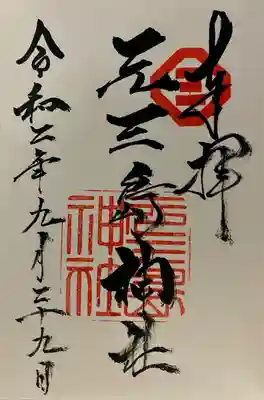 奉拝
元三島神社
令和二年九月二十九日